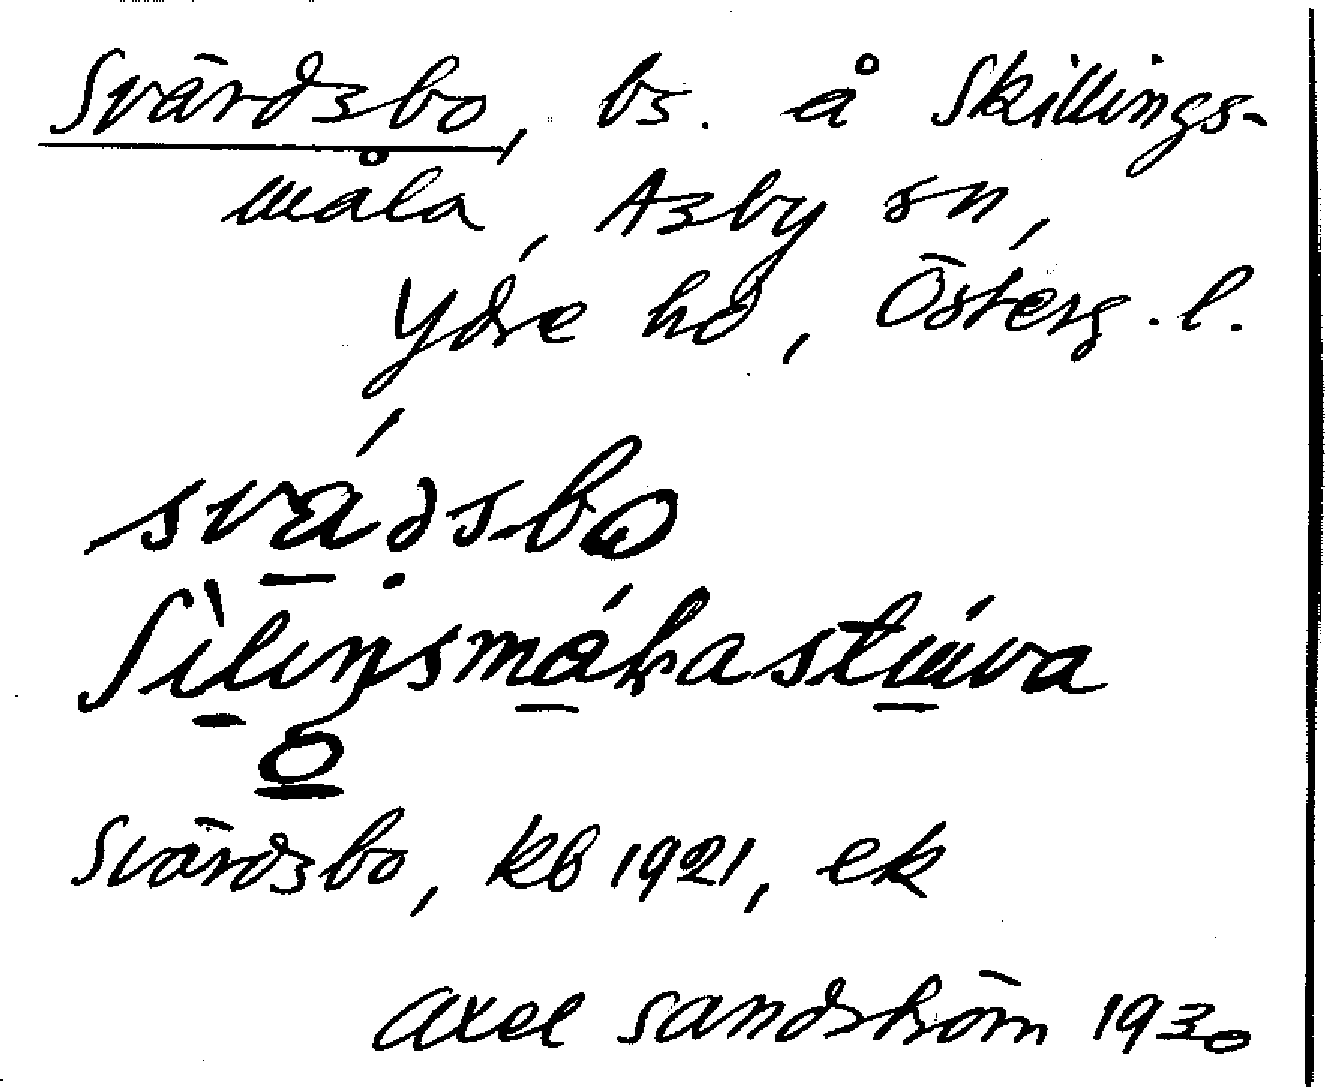 Svärdsbo, bs. å Skillings-
måla, Asby sn,
Ydre hd, Österg.l.
Svärdsbo, kb 1921, ek
Axel Sandström 1930